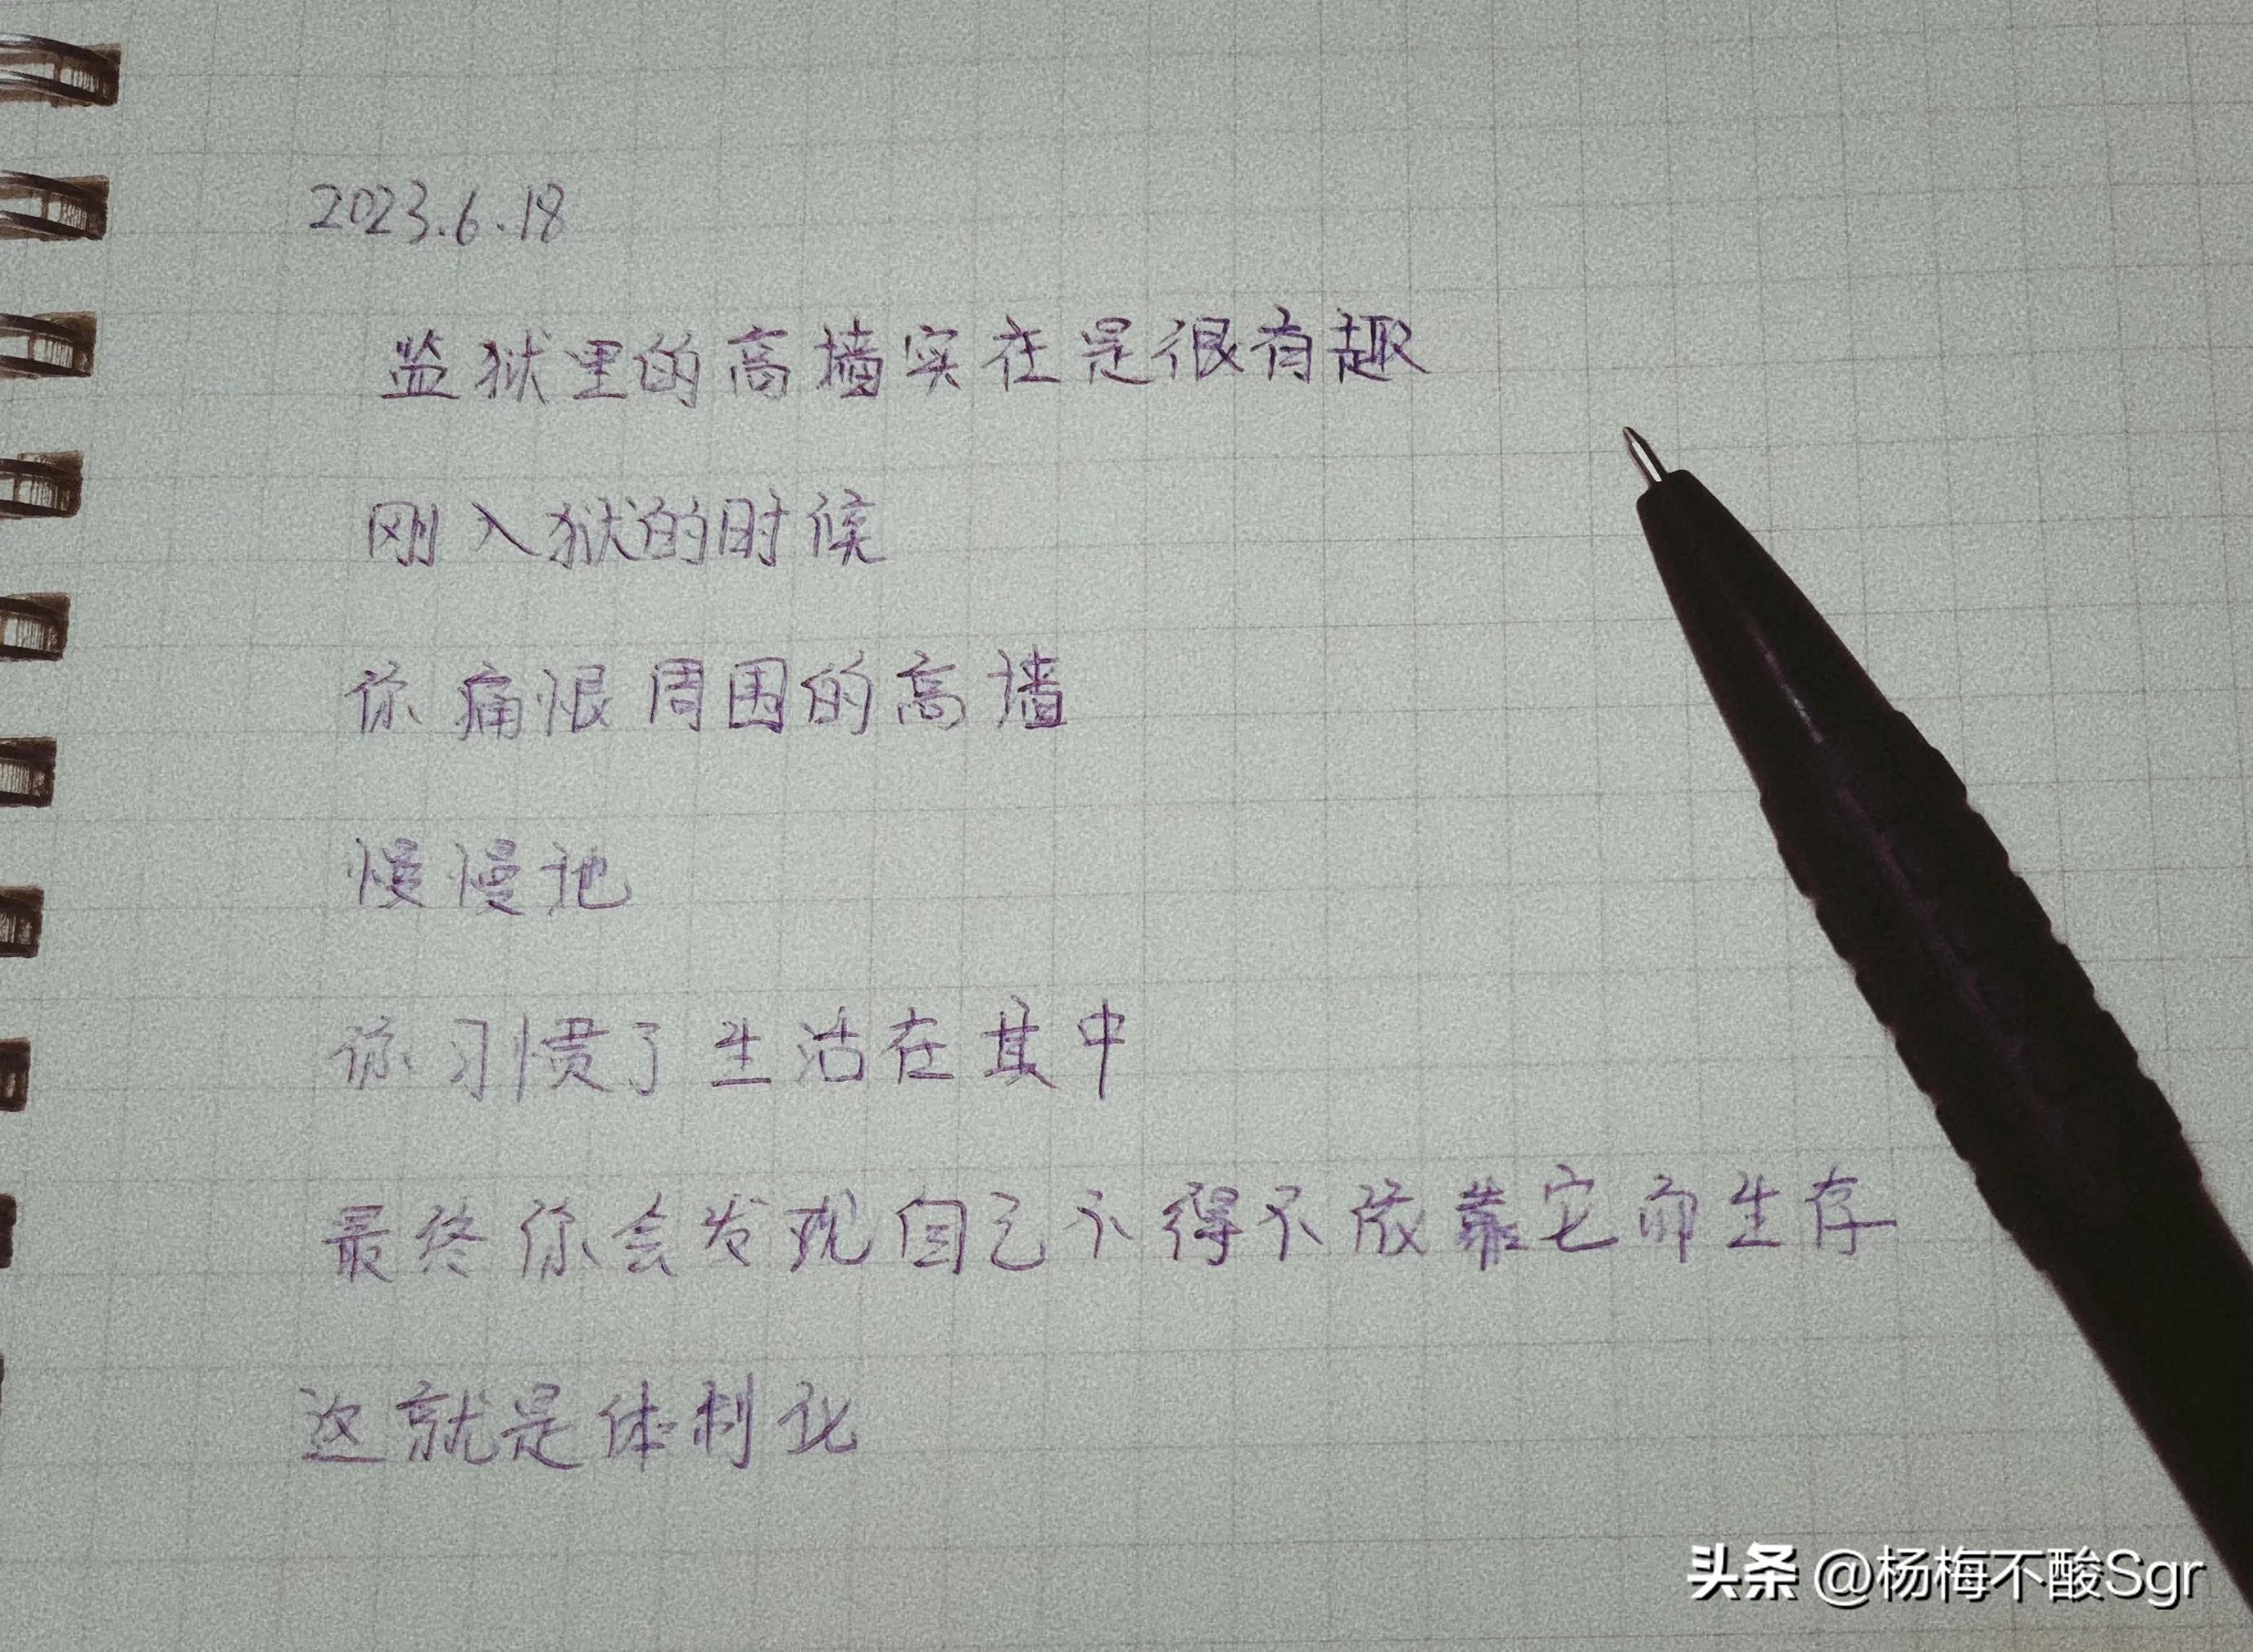 2023.6.18
监狱里的高墙实在是很有趣
刚入狱的时候
你痛恨周围的高墙
慢慢地
你习惯了生活在其中
最终你会发现自己不得不依靠它而生存
这就是体制化
头条 @杨梅不酸Sgr